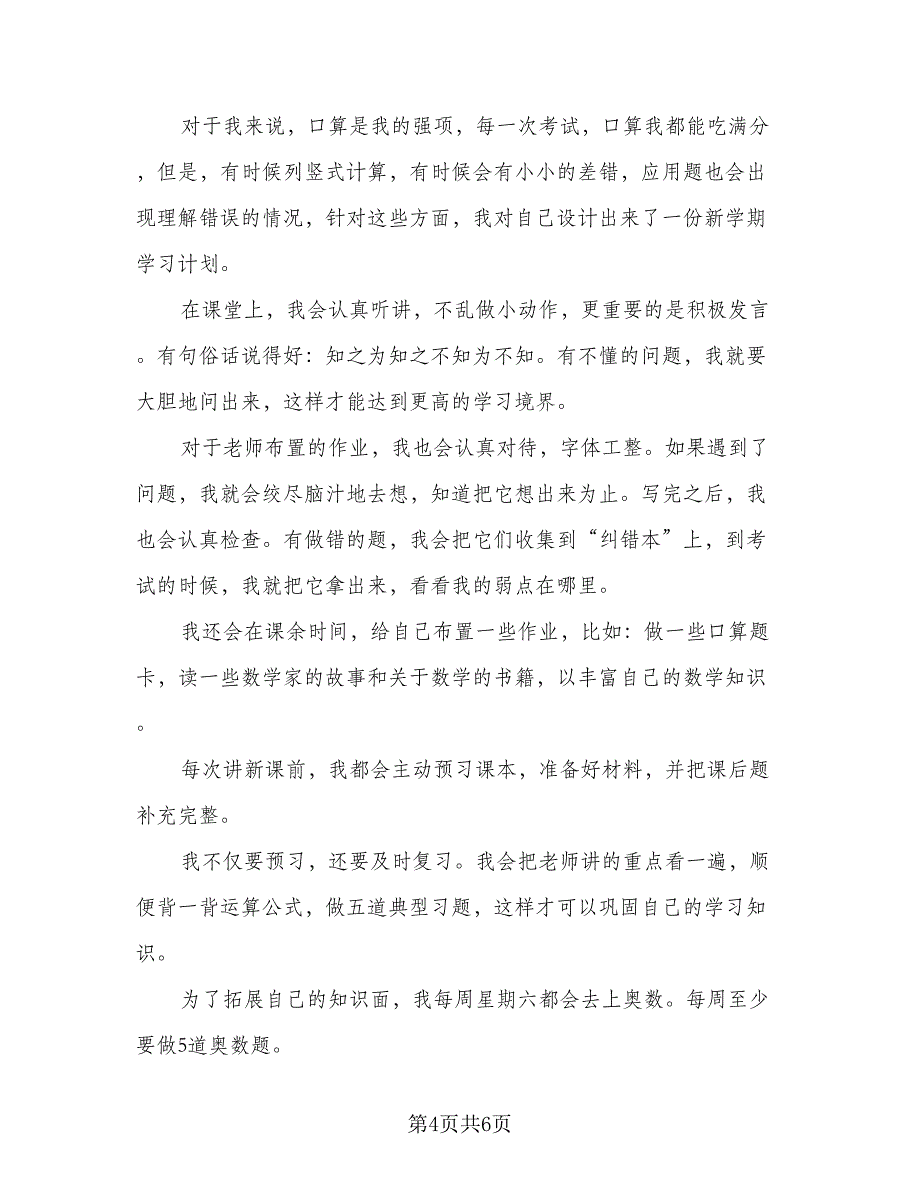 对于我来说，口算是我的强项，每一次考试，口算我都能吃满分
，但是，有时候列竖式计算，有时候会有小小的差错，应用题也会出
现理解错误的情况，针对这些方面，我对自己设计出来了一份新学期
学习计划。
在课堂上，我会认真听讲，不乱做小动作，更重要的是积极发言
。有句俗话说得好：知之为知之不知为不知。有不懂的问题，我就要
大胆地问出来，这样才能达到更高的学习境界。
对于老师布置的作业，我也会认真对待，字体工整。如果遇到了
问题，我就会绞尽脑汁地去想，知道把它想出来为止。写完之后，我
也会认真检查。有做错的题，我会把它们收集到“纠错本”上，到考
试的时候，我就把它拿出来，看看我的弱点在哪里。
我还会在课余时间，给自己布置一些作业，比如：做一些口算题
卡，读一些数学家的故事和关于数学的书籍，以丰富自己的数学知识
。
每次讲新课前，我都会主动预习课本，准备好材料，并把课后题
补充完整。
我不仅要预习，还要及时复习。我会把老师讲的重点看一遍，顺
便背一背运算公式，做五道典型习题，这样才可以巩固自己的学习知
识。
为了拓展自己的知识面，我每周星期六都会去上奥数。每周至少
要做5道奥数题。
第4页共6页